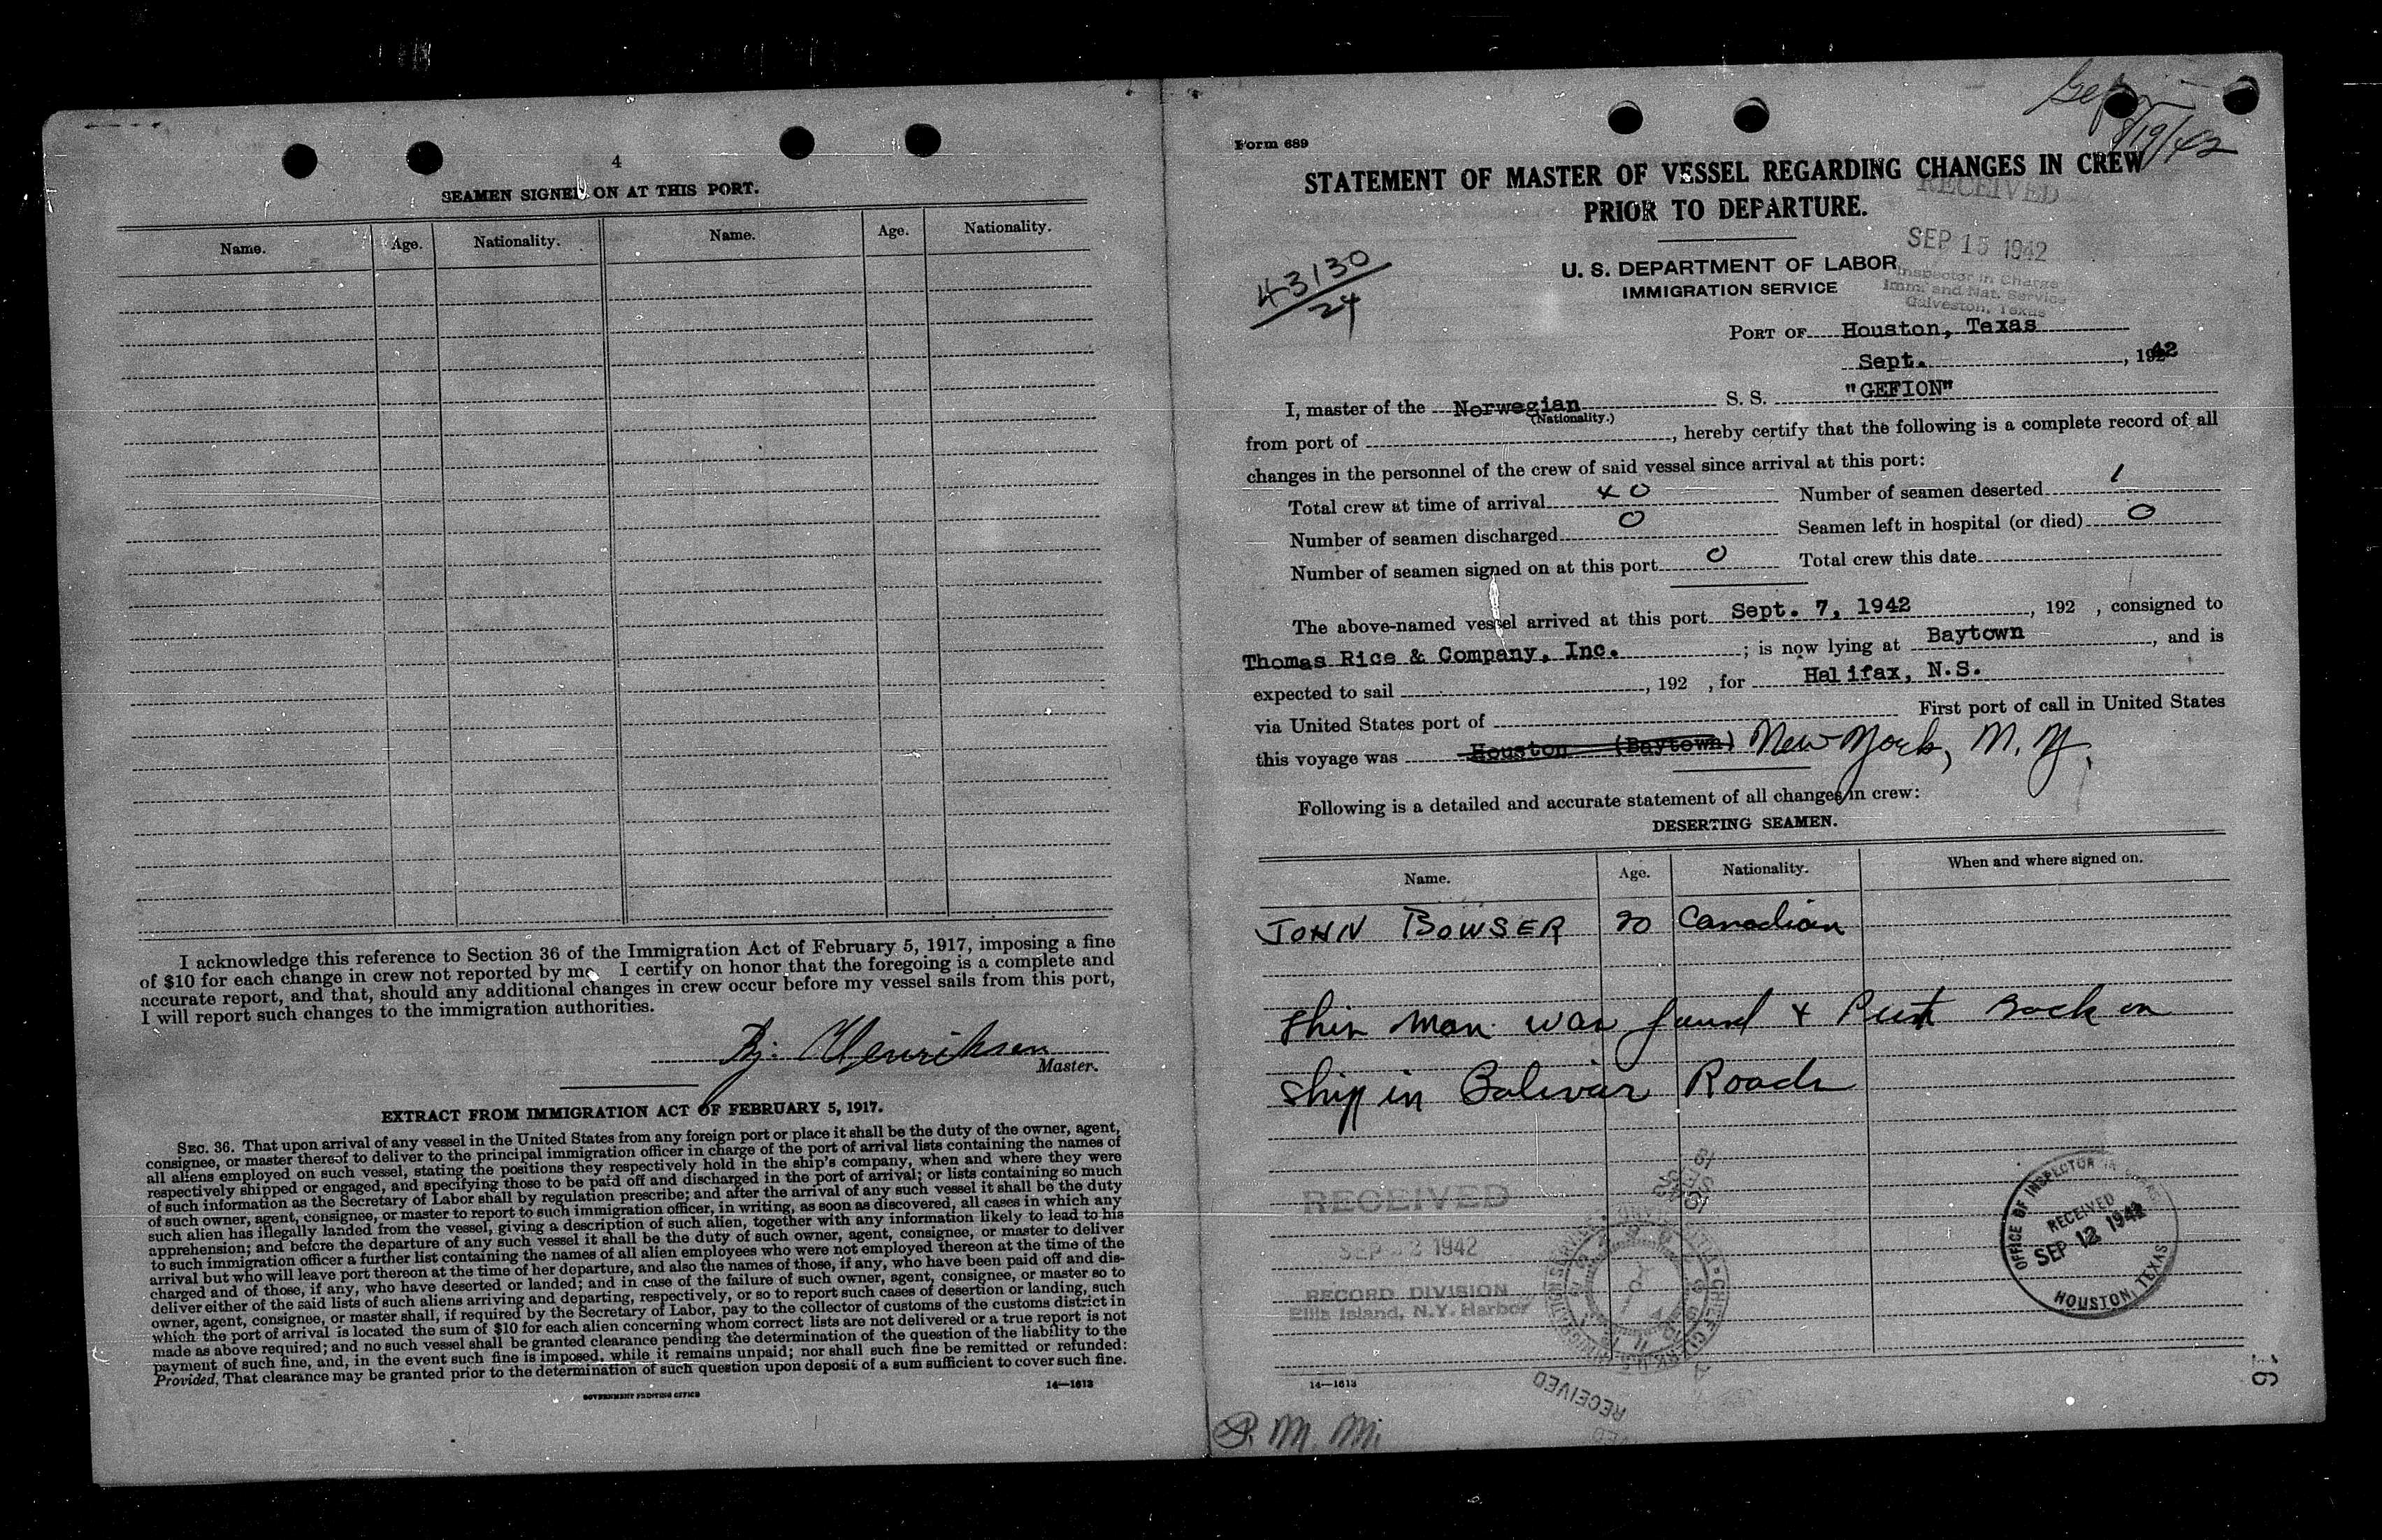 4
SEAMEN SIGNED ON AT THIS PORT.
Name. Age. Nationality. Name. Age. Nationality.
I acknowledge this reference to Section 36 of the Immigration Act of February 5, 1917, imposing a fine
of $10 for each change in crew not reported by me. I certify on honor that the foregoing is a complete and
accurate report, and that, should any additional changes in crew occur before my vessel sails from this port,
I will report such changes to the immigration authorities.
Bj. Henriksen
Master.
EXTRACT FROM IMMIGRATION ACT OF FEBRUARY 5, 1917.
SEC. 36. That upon arrival of any vessel in the United States from any foreign port or place it shall be the duty of the owner, agent,
consignee, or master thereof to deliver to the principal immigration officer in charge of the port of arrival lists containing the names of
all aliens employed on such vessel, stating the positions they respectively hold in the ship's company, when and where they were
respectively shipped or engaged, and specifying those to be paid off and discharged in the port of arrival; or lists containing so much
of such information as the Secretary of Labor shall by regulation prescribe; and after the arrival of any such vessel it shall be the duty
of such owner, agent, consignee, or master to report to such immigration officer, in writing, as soon as discovered, all cases in which any
such alien has illegally landed from the vessel, giving a description of such alien, together with any information likely to lead to his
apprehension; and before the departure of any such vessel it shall be the duty of such owner, agent, consignee, or master to deliver
to such immigration officer a further list containing the names of all alien employees who were not employed thereon at the time of the
arrival but who will leave port thereon at the time of her departure, and also the names of those, if any, who have been paid off and dis-
charged and of those, if any, who have deserted or landed; and in case of the failure of such owner, agent, consignee, or master so to
deliver either of the said lists of such aliens arriving and departing, respectively, or so to report such cases of desertion or landing, such
owner, agent, consignee, or master shall, if required by the Secretary of Labor, pay to the collector of customs of the customs district in
which the port of arrival is located the sum of $10 for each alien concerning whom correct lists are not delivered or a true report is not
made as above required; and no such vessel shall be granted clearance pending the determination of the question of the liability to the
payment of such fine, and, in the event such fine is imposed, while it remains unpaid; nor shall such fine be remitted or refunded:
Provided, That clearance may be granted prior to the determination of such question upon deposit of a sum sufficient to cover such fine.
GOVERNMENT PRINTING OFFICE
14—1613
Gefion
9/19/42
Form 689
STATEMENT OF MASTER OF VESSEL REGARDING CHANGES IN CREW
PRIOR TO DEPARTURE.
RECEIVED
SEP 15 1942
Inspector in Charge
Imm. and Nat. Service
Galveston, Texas
43130
24
U. S. DEPARTMENT OF LABOR
IMMIGRATION SERVICE
PORT OF Houston, Texas
Sept. , 1942
I, master of the Norwegian S. S. "GEFION"
(Nationality.)
from port of , hereby certify that the following is a complete record of all
changes in the personnel of the crew of said vessel since arrival at this port:
Total crew at time of arrival 40 Number of seamen deserted 1
Number of seamen discharged 0 Seamen left in hospital (or died) 0
Number of seamen signed on at this port 0 Total crew this date
The above-named vessel arrived at this port Sept. 7, 1942 , 192 , consigned to
Thomas Rice & Company, Inc. ; is now lying at Baytown , and is
expected to sail , 192 , for Halifax, N.S.
via United States port of First port of call in United States
this voyage was Houston (Baytown) New York, N. Y.
Following is a detailed and accurate statement of all changes in crew:
DESERTING SEAMEN.
Name. Age. Nationality. When and where signed on.
JOHN BOWSER 20 Canadian
This man was found & Put Back on
Ship in Bolivar Roads
RECEIVED
SEP 1942
RECORD DIVISION
Ellis Island, N.Y. Harbor
OFFICE OF INSPECTOR IN CHARGE
RECEIVED
SEP 12 1942
HOUSTON, TEXAS
RECEIVED
14—1613
16
P. M. M.